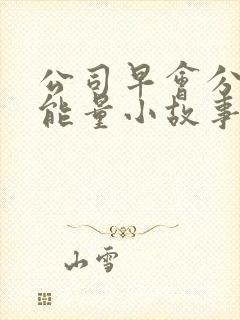 公司早会分
能量小故事
山雪